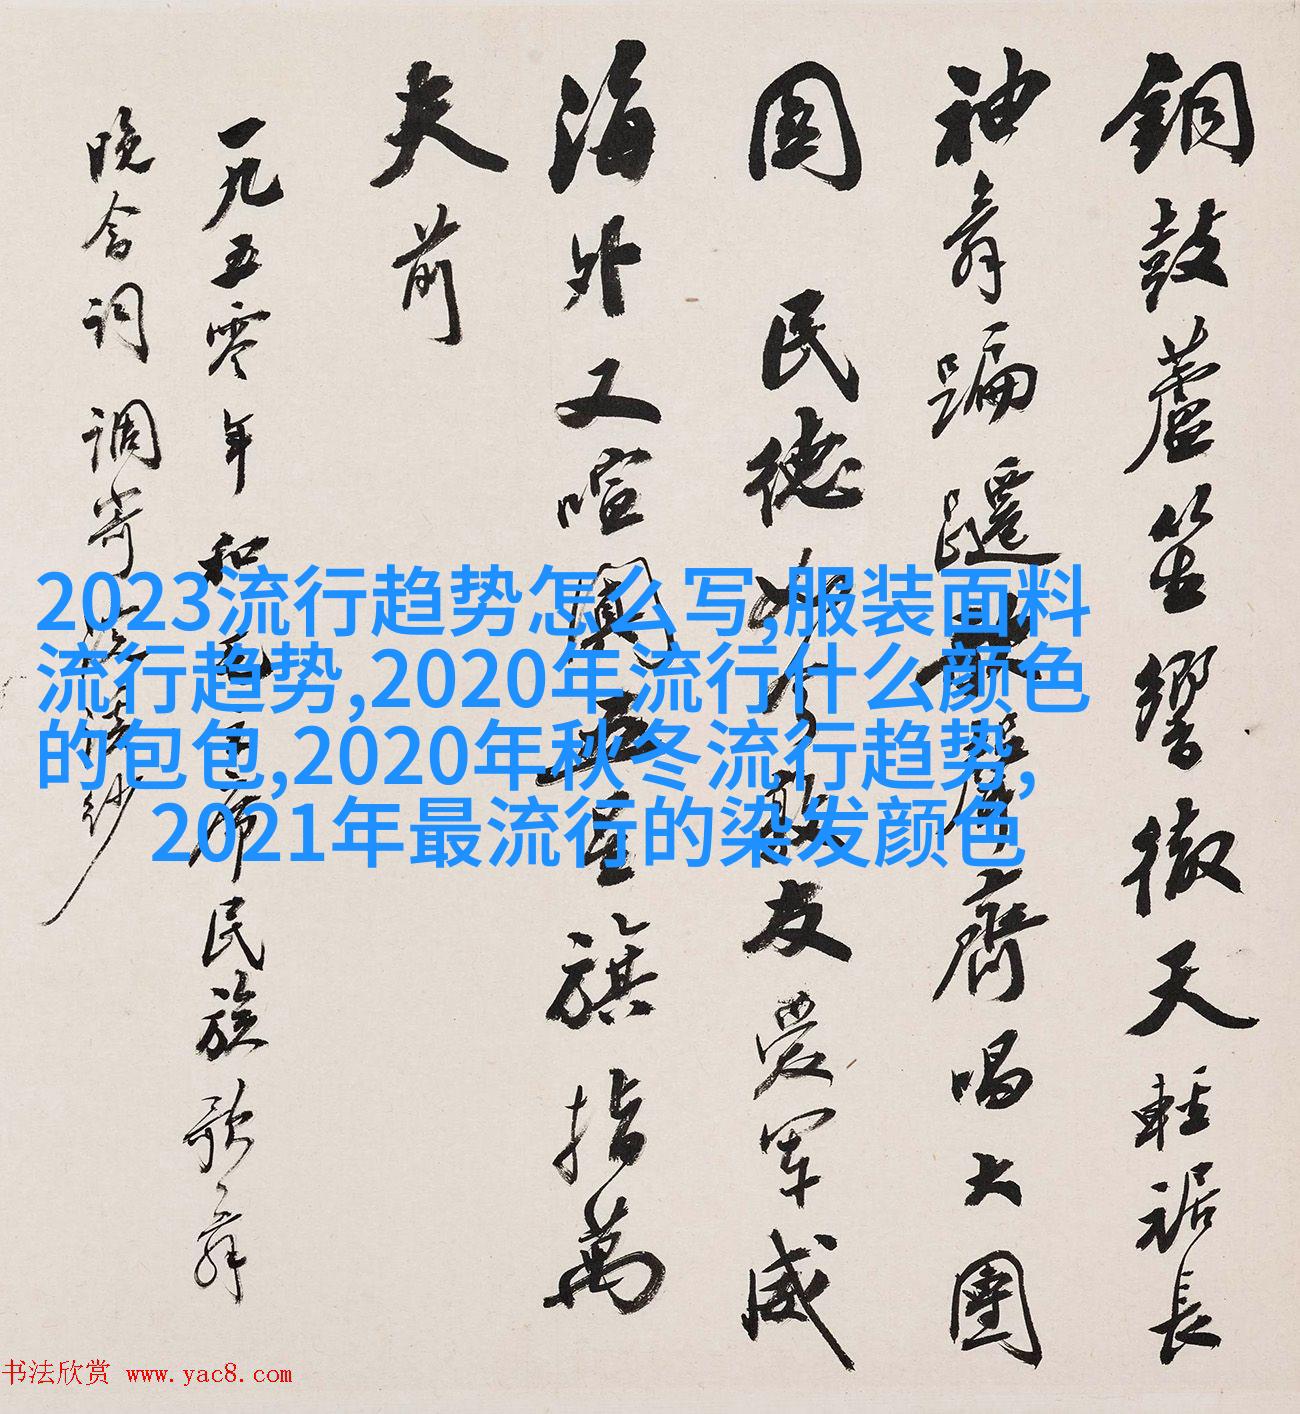 銅鼓蘆笙響徹天輕裾長
袖舞蹁躚齊唱大團
圓民德如今友愛軍威
海外又喧五星旗指萬
夫前
一九五零年和毛主席民族歌舞
晚會詞調寄浣溪紗
2023流行趋势怎么写,服装面料
流行趋势,2020年流行什么颜色
的包包,2020年秋冬流行趋势,
2021年最流行的染发颜色
书法欣赏 www.yac8.com